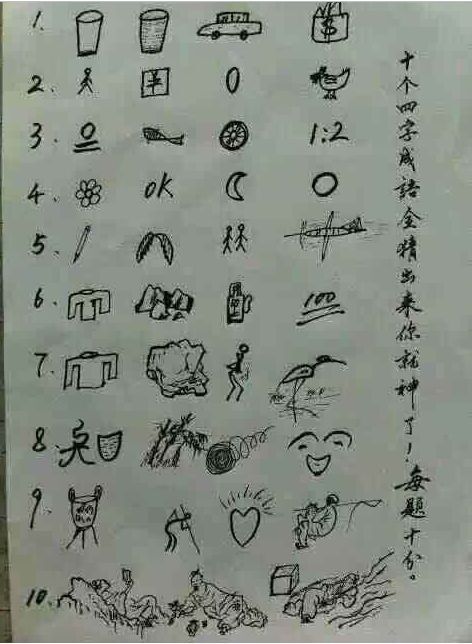 1. $
2. 0
3. 0 1:2
4. ok
5.
6. 100
7.
8.
9.
10.
十个四字成語全猜出来你就神了！每題十分。